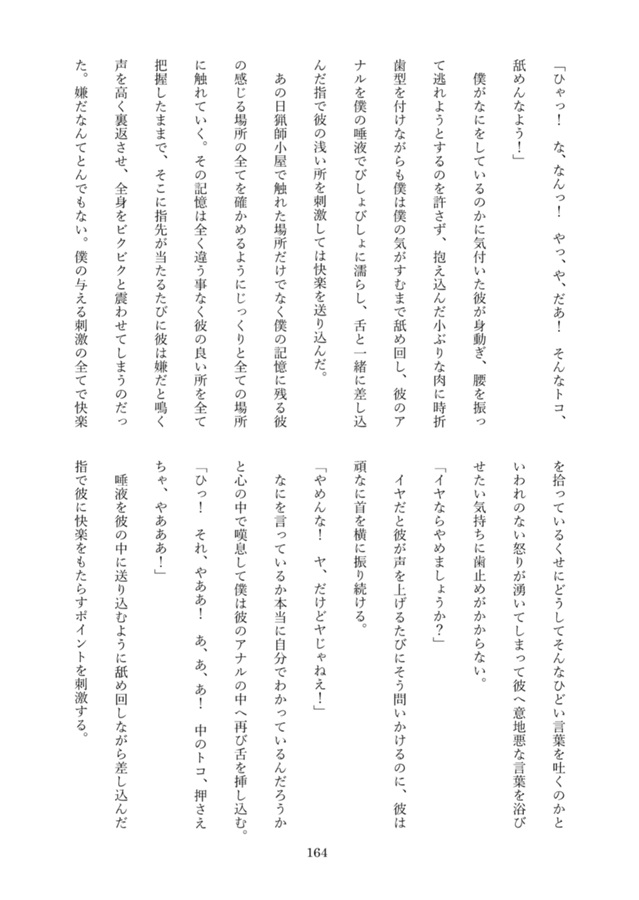 「ひゃっ！　な、なんっ！　やっ、や、だあ！　そんなトコ、
舐めんなよう！」
　僕がなにをしているのかに気付いた彼が身動ぎ、腰を振っ
て逃れようとするのを許さず、抱え込んだ小ぶりな肉に時折
歯型を付けながらも僕は僕の気がすむまで舐め回し、彼のア
ナルを僕の唾液でびしょびしょに濡らし、舌と一緒に差し込
んだ指で彼の浅い所を刺激しては快楽を送り込んだ。
　あの日猟師小屋で触れた場所だけでなく僕の記憶に残る彼
の感じる場所の全てを確かめるようにじっくりと全ての場所
に触れていく。その記憶は全く違う事なく彼の良い所を全て
把握したままで、そこに指先が当たるたびに彼は嫌だと鳴く
声を高く裏返させ、全身をビクビクと震わせてしまうのだっ
た。嫌だなんてとんでもない。僕の与える刺激の全てで快楽
を拾っているくせにどうしてそんなひどい言葉を吐くのかと
いわれのない怒りが湧いてしまって彼へ意地悪な言葉を浴び
せたい気持ちに歯止めがかからない。
「イヤならやめましょうか？」
　イヤだと彼が声を上げるたびにそう問いかけるのに、彼は
頑なに首を横に振り続ける。
「やめんな！　ヤ、だけどヤじゃねえ！」
　なにを言っているか本当に自分でわかっているんだろうか
と心の中で嘆息して僕は彼のアナルの中へ再び舌を挿し込む。
「ひっ！　それ、やああ！　あ、あ、あ！　中のトコ、押さえ
ちゃ、やあああ！」
　唾液を彼の中に送り込むように舐め回しながら差し込んだ
指で彼に快楽をもたらすポイントを刺激する。
164